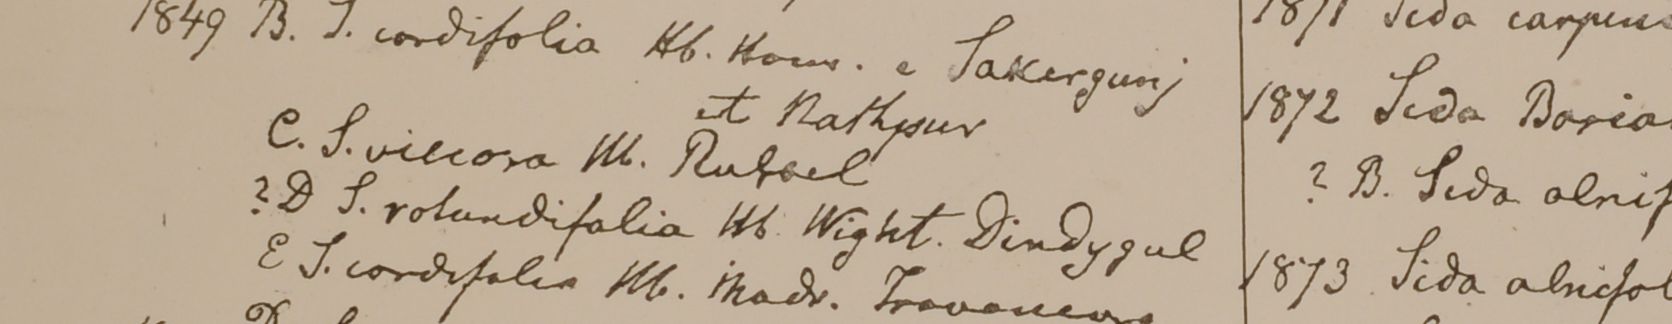 1849 B. S. cordifolia Hb. Ham. e Sakergunj
et Nathpur
C. S. viscosa Hb. Russel
? D S. rotundifolia Hb Wight. Dindygul
E S. cordifolia Hb. Madr. Travancore
D
1871 Sida carpini
1872 Sida Boria
? B. Sida alnif
1873 Sida alnifol